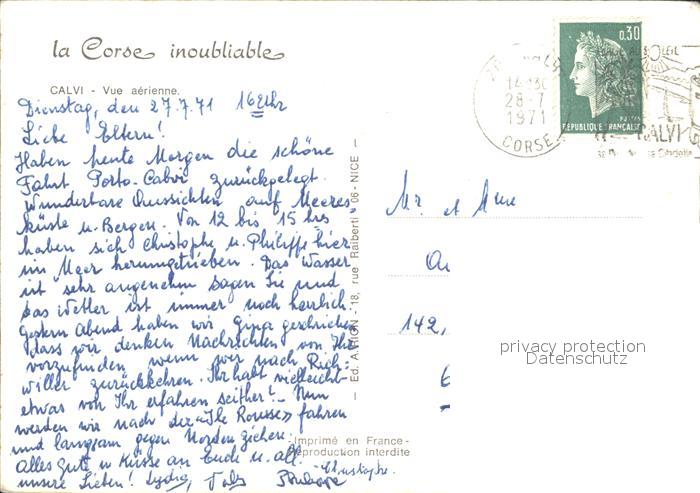 la Corse inoubliable
CALVI - Vue aérienne.
Dienstag, den 27.7.71 16 Uhr
Liebe Eltern!
Haben heute Morgen die schöne
Fahrt Porto-Calvi zurückgelegt.
Wunderbare Aussichten auf Meeres-
küste u. Bergen. Von 12 bis 15 hrs
haben sich Christophe u. Philippe hier
im Meer herumgetrieben. Das Wasser
ist sehr angenehm sagen Sie und
das Wetter ist immer noch herrlich.
Gestern Abend haben wir Gina geschrieben
dass wir denken Nachrichten von Ihr
vorzufinden wenn wir nach Rich-
willer zurückkehren. Ihr habt vielleicht
etwas von Ihr erfahren seither! Nun
werden wir nach der "Ile Rousse" fahren
und langsam gegen Norden ziehen.
Alles Gute u. Küsse an Euch u. all
unsere Lieben! Lydia, Philippe
Christophe.
Ed. A. RION - 18, rue Raiberti - 06 - NICE
Imprimé en France -
Reproduction interdite
0,30
POSTES
REPUBLIQUE FRANÇAISE
14H30
28-7
1971
CORSE
CALVI
Mr. et Mme
142,
privacy protection
Datenschutz